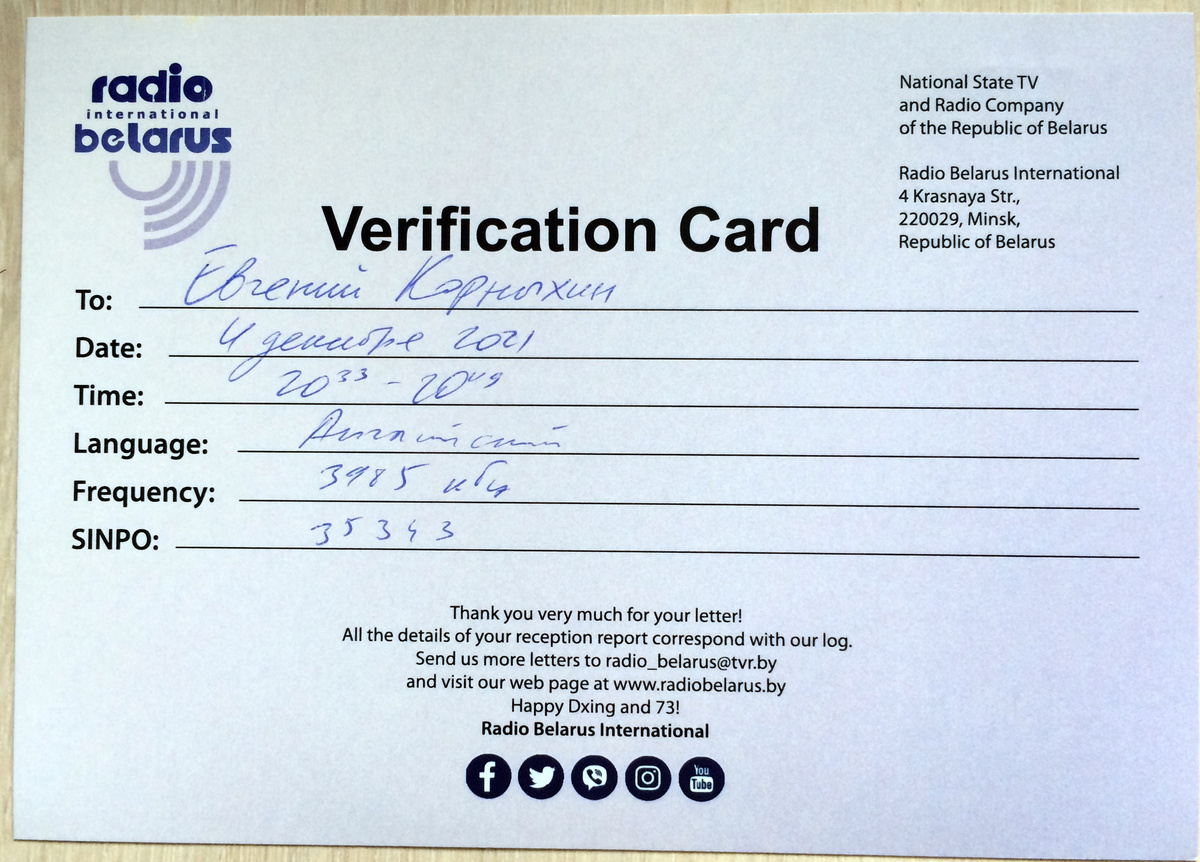 radio
international
belarus
National State TV
and Radio Company
of the Republic of Belarus
Radio Belarus International
4 Krasnaya Str.,
220029, Minsk,
Republic of Belarus
Verification Card
To: Евгений Корныхин
Date: 4 декабре 2021
Time: 20³³ - 20⁴⁹
Language: Английский
Frequency: 3985 кГц
SINPO: 35343
Thank you very much for your letter!
All the details of your reception report correspond with our log.
Send us more letters to radio_belarus@tvr.by
and visit our web page at www.radiobelarus.by
Happy Dxing and 73!
Radio Belarus International
You
Tube